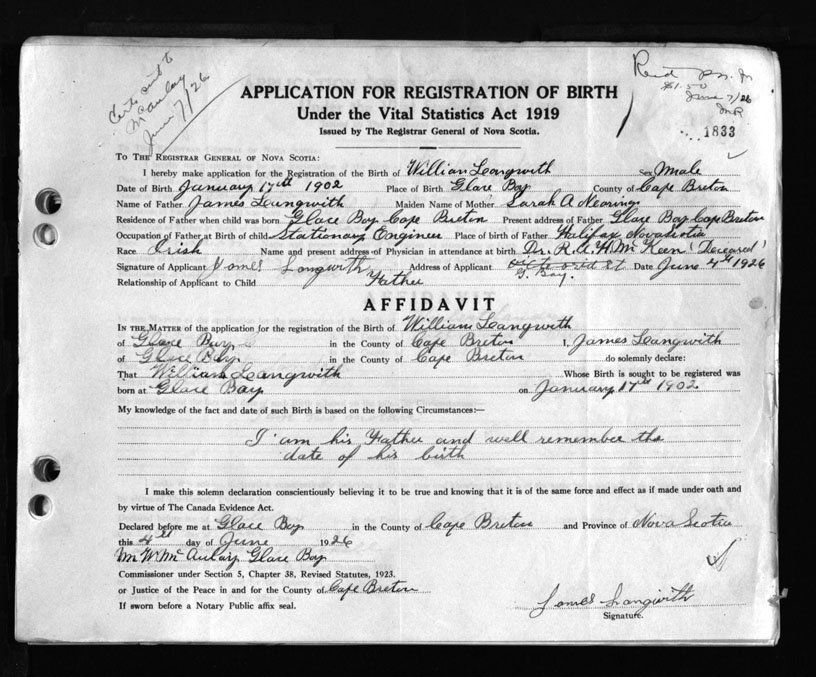 Certs sent to
McAulay
June 7/26
Rec'd
$1.50
June 7/26
1833
APPLICATION FOR REGISTRATION OF BIRTH
Under the Vital Statistics Act 1919
Issued by The Registrar General of Nova Scotia.
TO THE REGISTRAR GENERAL OF NOVA SCOTIA:
I hereby make application for the Registration of the Birth of William Leangwith sex male
Date of Birth January 17th 1902 Place of Birth Glace Bay County of Cape Breton
Name of Father James Leangwith Maiden Name of Mother Sarah A Nearing
Residence of Father when child was born Glace Bay Cape Breton Present address of Father Glace Bay Cape Breton
Occupation of Father at Birth of child Stationary Engineer Place of birth of Father Halifax Nova Scotia
Race Irish Name and present address of Physician in attendance at birth Dr. R.A.H. McKeen 'Deceased'
Signature of Applicant James Langwith Address of Applicant G. Bay. Date June 4th 1926
Relationship of Applicant to Child Father
AFFIDAVIT
IN THE MATTER of the application for the registration of the Birth of William Leangwith
of Glace Bay in the County of Cape Breton I, James Leangwith
of Glace Bay in the County of Cape Breton do solemnly declare:
That William Leangwith Whose Birth is sought to be registered was
born at Glace Bay on January 17th 1902
My knowledge of the fact and date of such Birth is based on the following Circumstances:—
I am his Father and well remember the
date of his birth
I make this solemn declaration conscientiously believing it to be true and knowing that it is of the same force and effect as if made under oath and
by virtue of The Canada Evidence Act.
Declared before me at Glace Bay in the County of Cape Breton and Province of Nova Scotia
this 4th day of June 1926
M W McAulay Glace Bay
Commissioner under Section 5, Chapter 38, Revised Statutes, 1923.
or Justice of the Peace in and for the County of Cape Breton
If sworn before a Notary Public affix seal.
James Langwith
Signature.